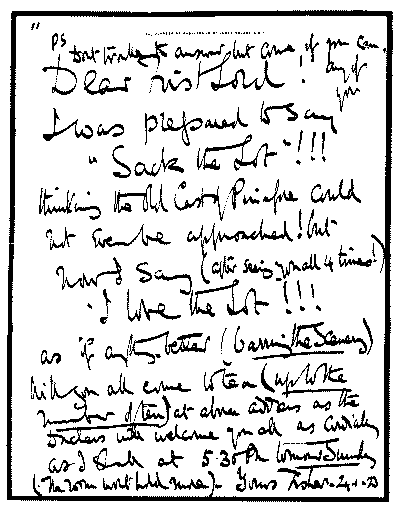 "
PS Don't trouble to answer but come if you can.
any of
you
Dear 1st Lord!
I was prepared to say
"Sack the Lot"!!!
thinking the Old Cast of Pinafore could
not even be approached! but
now I say (after seeing you all 4 times!)
"I love the Lot!!!
as if anything better (barring the Scenery)
Will you all come to tea (up to the
number of ten) at above address as the
will welcome you all as cordially
as I shall at 5.30 PM tomorrow Sunday
(The room won't hold more)- Yours Fisher